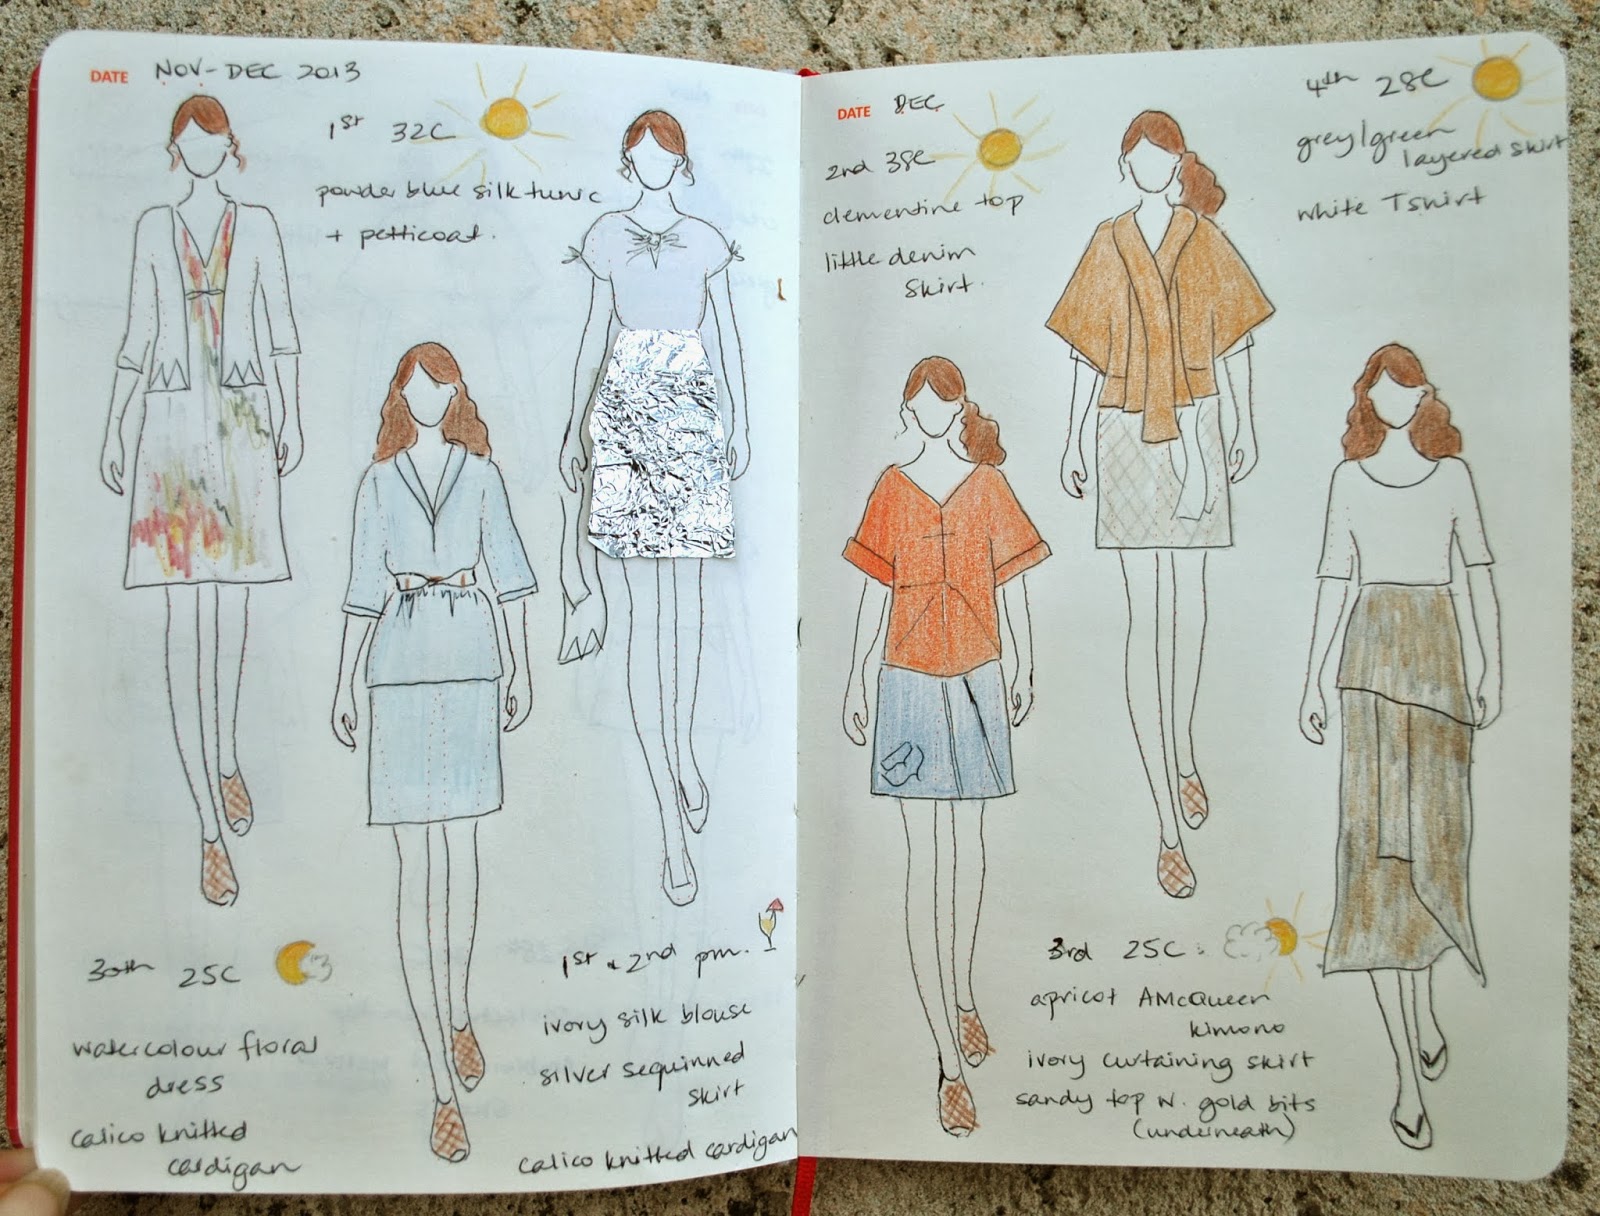 DATE NOV-DEC 2013
1st 32C
powder blue silk tunic
+ petticoat.
30th 25C
watercolour floral
dress
calico knitted
cardigan
1st & 2nd pm.
ivory silk blouse
silver sequinned
skirt
calico knitted cardigan
DATE DEC
2nd 38C
clementine top
little denim
skirt.
4th 28C
grey/green
layered skirt
white Tshirt
3rd 25C:
apricot AMcQueen
kimono
ivory curtaining skirt
sandy top w. gold bits
(underneath)